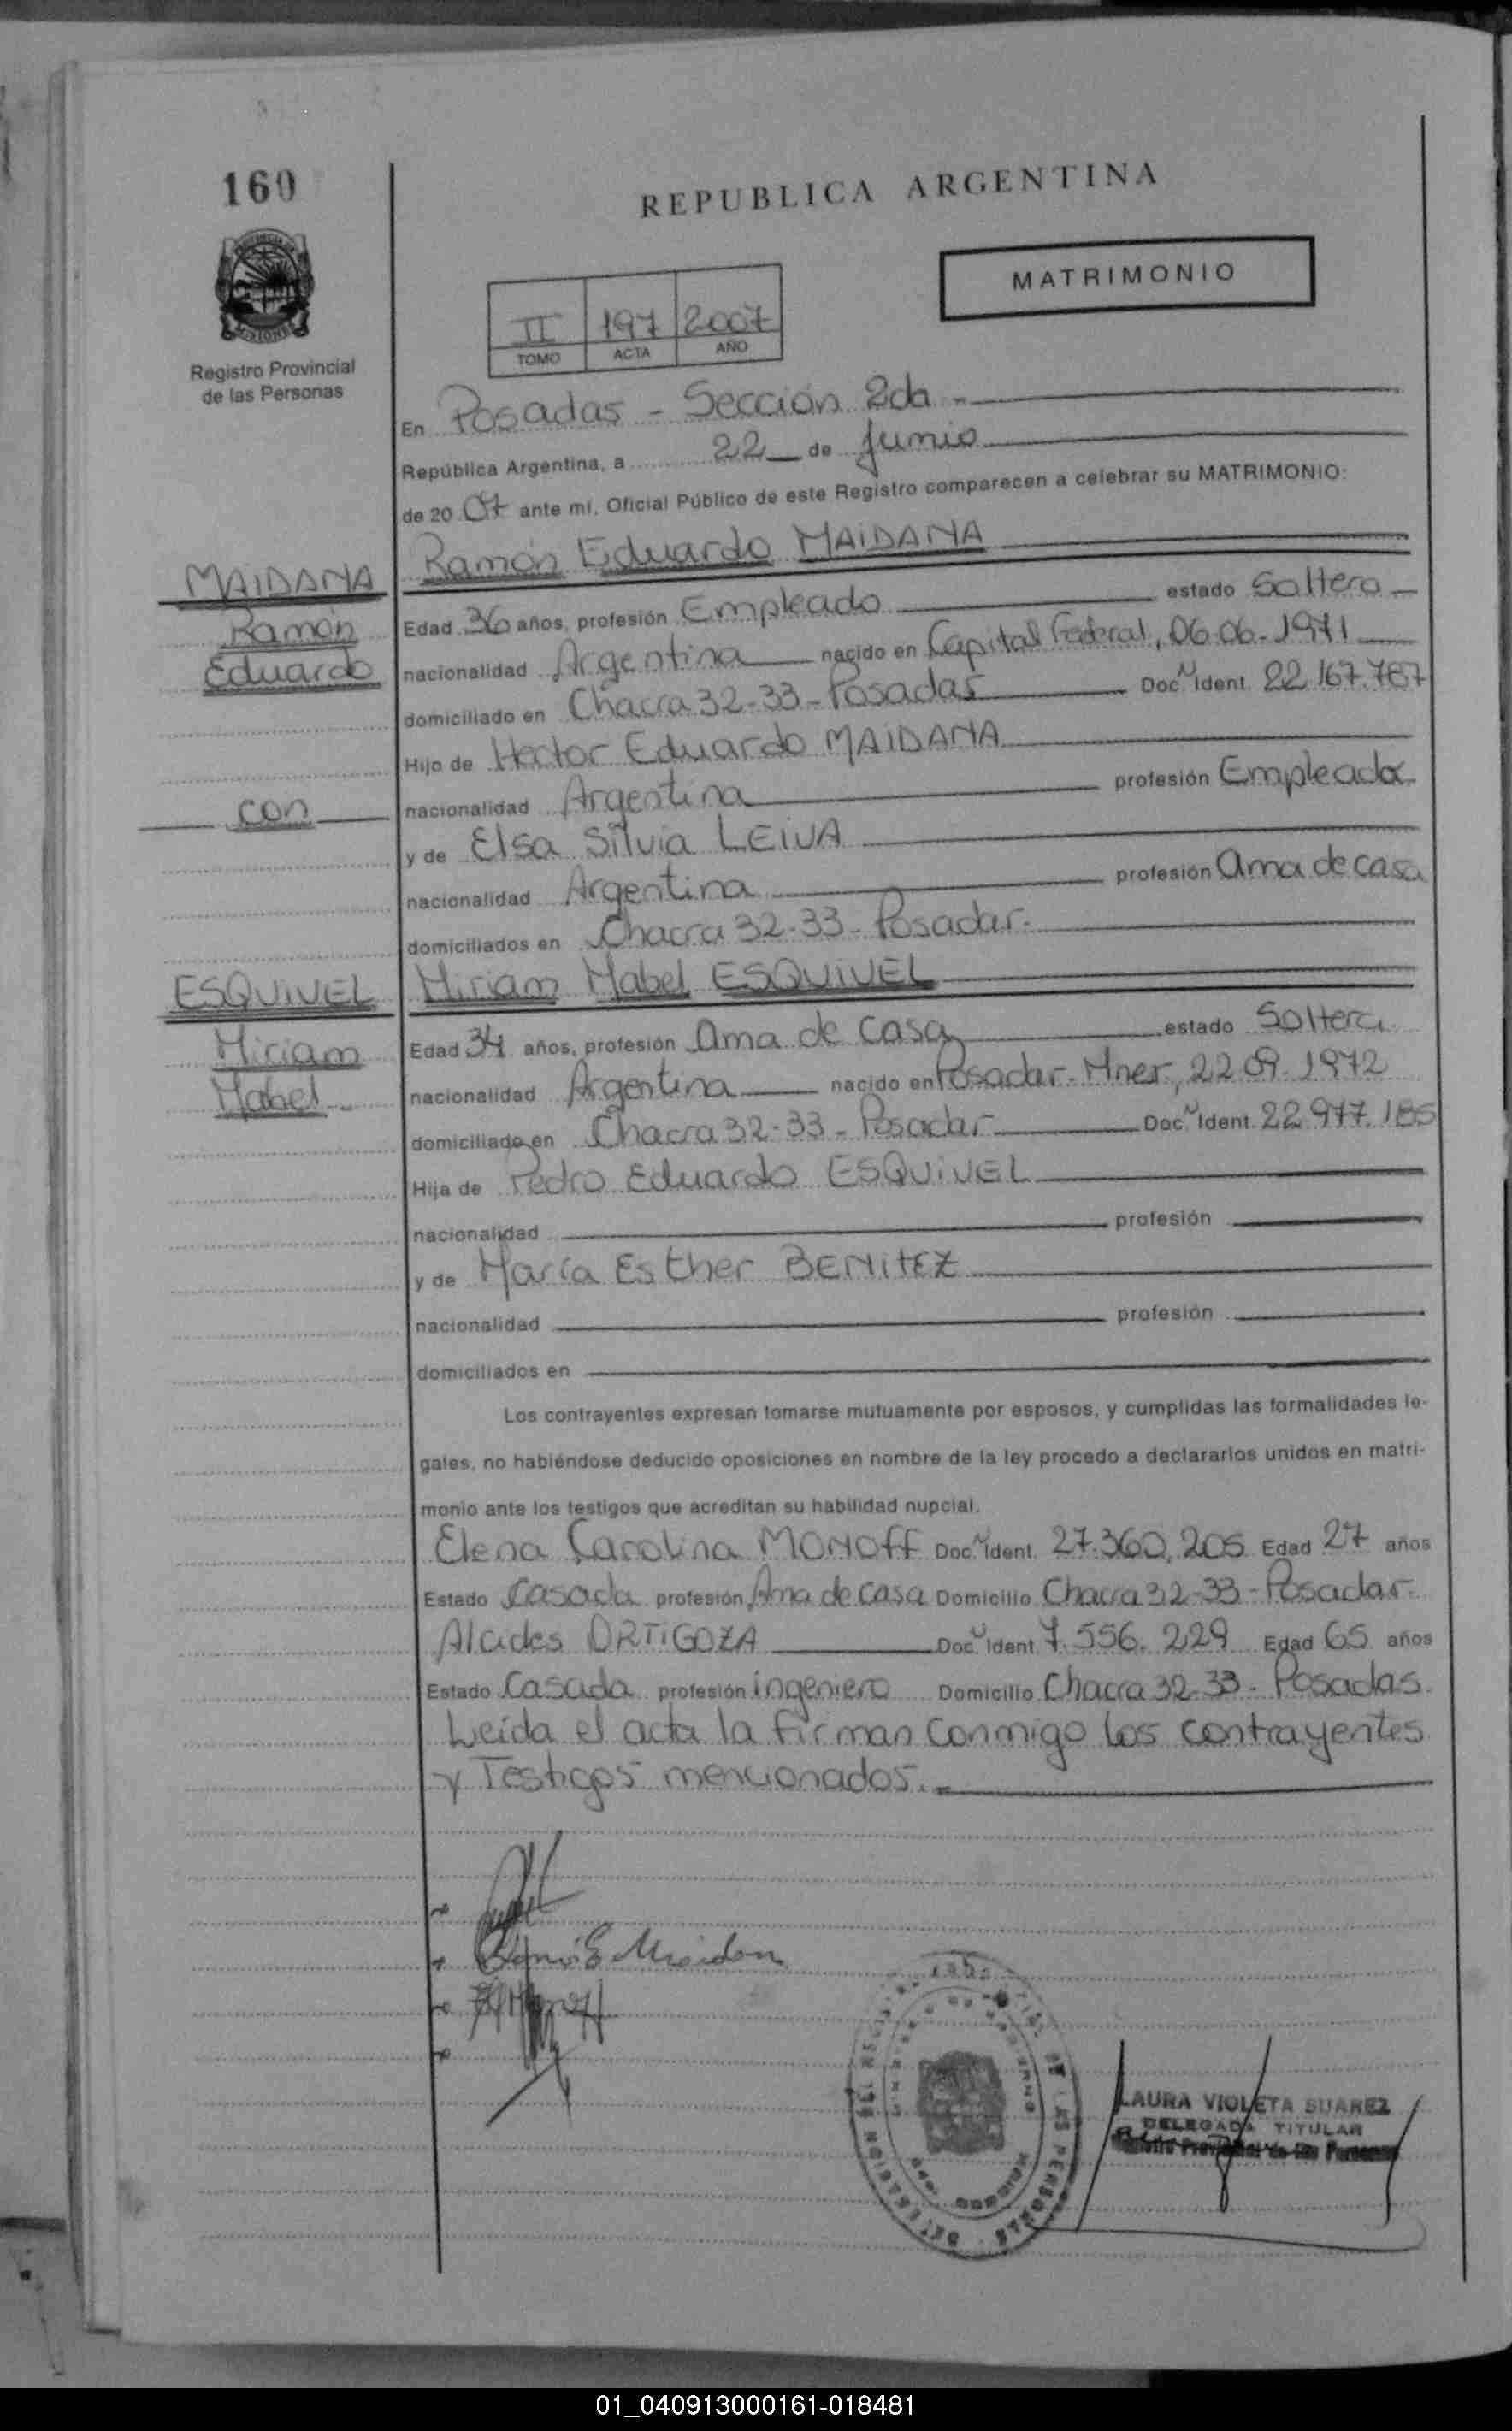 160
REPUBLICA ARGENTINA
MATRIMONIO
II 197 2007
TOMO ACTA AÑO
Registro Provincial
de las Personas
En Posadas - Sección 2da -
República Argentina, a 22 de Junio
de 20 07 ante mi, Oficial Público de este Registro comparecen a celebrar su MATRIMONIO:
MAIDANA Ramón Eduardo MAIDANA
Ramón Edad 36 años, profesión Empleado estado Soltero
Eduardo nacionalidad Argentina nacido en Capital Federal, 06.06.1971
domiciliado en Chacra 32-33 - Posadas Doc. Ident. 22.167.787
Hijo de Hector Eduardo MAIDANA
con nacionalidad Argentina profesión Empleado
y de Elsa Silvia LEIVA
nacionalidad Argentina profesión Ama de casa
domiciliados en Chacra 32-33 - Posadas.
ESQUIVEL Miriam Mabel ESQUIVEL
Miriam Edad 34 años, profesión Ama de casa estado Soltera
Mabel nacionalidad Argentina nacido en Posadas - Mnes, 22.09.1972
domiciliada en Chacra 32-33 - Posadas Doc. Ident. 22.977.185
Hija de Pedro Eduardo ESQUIVEL
nacionalidad profesión
y de María Esther BENITEZ
nacionalidad profesión
domiciliados en
Los contrayentes expresan tomarse mutuamente por esposos, y cumplidas las formalidades le-
gales, no habiéndose deducido oposiciones en nombre de la ley procedo a declararlos unidos en matri-
monio ante los testigos que acreditan su habilidad nupcial.
Elena Carolina MONOFF Doc. Ident. 27.360.205 Edad 27 años
Estado Casada profesión Ama de casa Domicilio Chacra 32-33 - Posadas.
Alcides ORTIGOZA Doc. Ident. 7.556.229 Edad 65 años
Estado Casada profesión ingeniero Domicilio Chacra 32-33 - Posadas.
Leída el acta la firman conmigo los contrayentes
y Testigos mencionados.
LAURA VIOLETA SUAREZ
DELEGADA TITULAR
Registro Provincial de las Personas
01_040913000161-018481